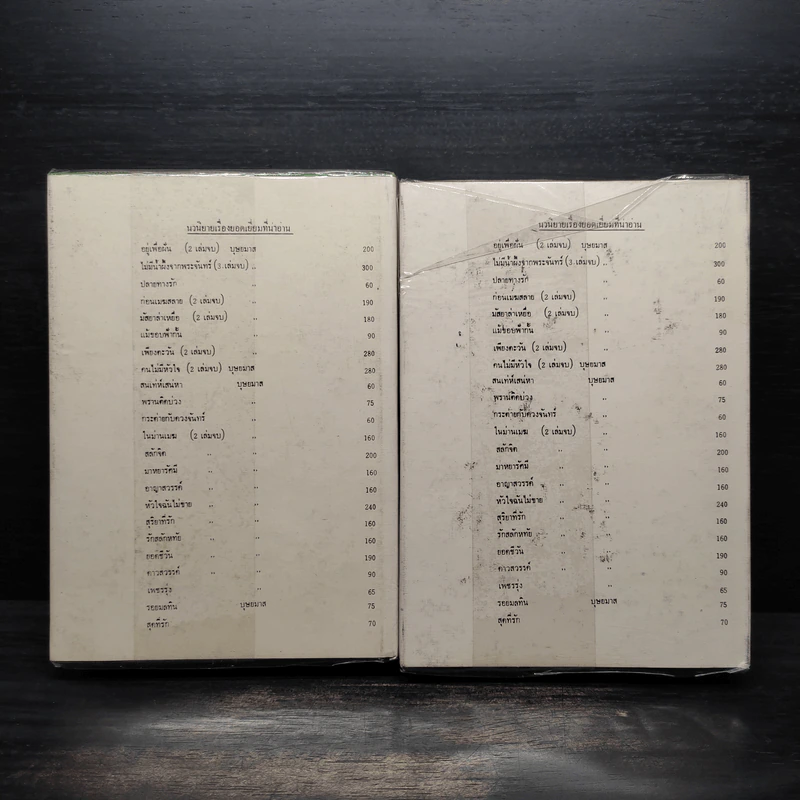 นวนิยายเรื่องยอดเยี่ยมที่น่าอ่าน
อยู่เพื่อฝัน (2 เล่มจบ) บุษยมาส 200
ไม่มีน้ำผึ้งจากพระจันทร์ (3 เล่มจบ) ,, 300
ปลายทางรัก ,, 60
ก่อนเมฆสลาย (2 เล่มจบ) ,, 190
มัสยาล่าเหยื่อ (2 เล่มจบ) ,, 180
แม้ขอบฟ้ากั้น ,, 90
เพียงตะวัน (2 เล่มจบ) ,, 280
คนไม่มีหัวใจ (2 เล่มจบ) บุษยมาส 280
สนเท่ห์เสน่หา บุษยมาส 60
พรานติดบ่วง ,, 75
กระต่ายกับดวงจันทร์ ,, 60
ในม่านเมฆ (2 เล่มจบ) ,, 160
สลักจิต ,, ,, 200
มาหยารัศมี ,, 160
อาญาสวรรค์ ,, ,, 160
หัวใจฉันไม่ขาย ,, ,, 240
สุริยาที่รัก ,, ,, 160
รักสลักหทัย ,, ,, 160
ยอดชีวัน ,, ,, 190
ดาวสวรรค์ ,, ,, 90
เพชรรุ่ง ,, 65
รอยมลทิน บุษยมาส 75
สุดที่รัก 70
นวนิยายเรื่องยอดเยี่ยมที่น่าอ่าน
อยู่เพื่อฝัน (2 เล่มจบ) บุษยมาส 200
ไม่มีน้ำผึ้งจากพระจันทร์ (3 เล่มจบ) ,, 300
ปลายทางรัก ,, 60
ก่อนเมฆสลาย (2 เล่มจบ) ,, 190
มัสยาล่าเหยื่อ (2 เล่มจบ) ,, 180
แม้ขอบฟ้ากั้น ,, 90
เพียงตะวัน (2 เล่มจบ) ,, 280
คนไม่มีหัวใจ (2 เล่มจบ) บุษยมาส 280
สนเท่ห์เสน่หา บุษยมาส 60
พรานติดบ่วง ,, 75
กระต่ายกับดวงจันทร์ ,, 60
ในม่านเมฆ (2 เล่มจบ) ,, 160
สลักจิต ,, ,, 200
มาหยารัศมี ,, ,, 160
อาญาสวรรค์ ,, ,, 160
หัวใจฉันไม่ขาย ,, ,, 240
สุริยาที่รัก ,, ,, 160
รักสลักหทัย ,, ,, 160
ยอดชีวัน ,, ,, 190
ดาวสวรรค์ ,, ,, 90
เพชรรุ่ง ,, 65
รอยมลทิน บุษยมาส 75
สุดที่รัก 70